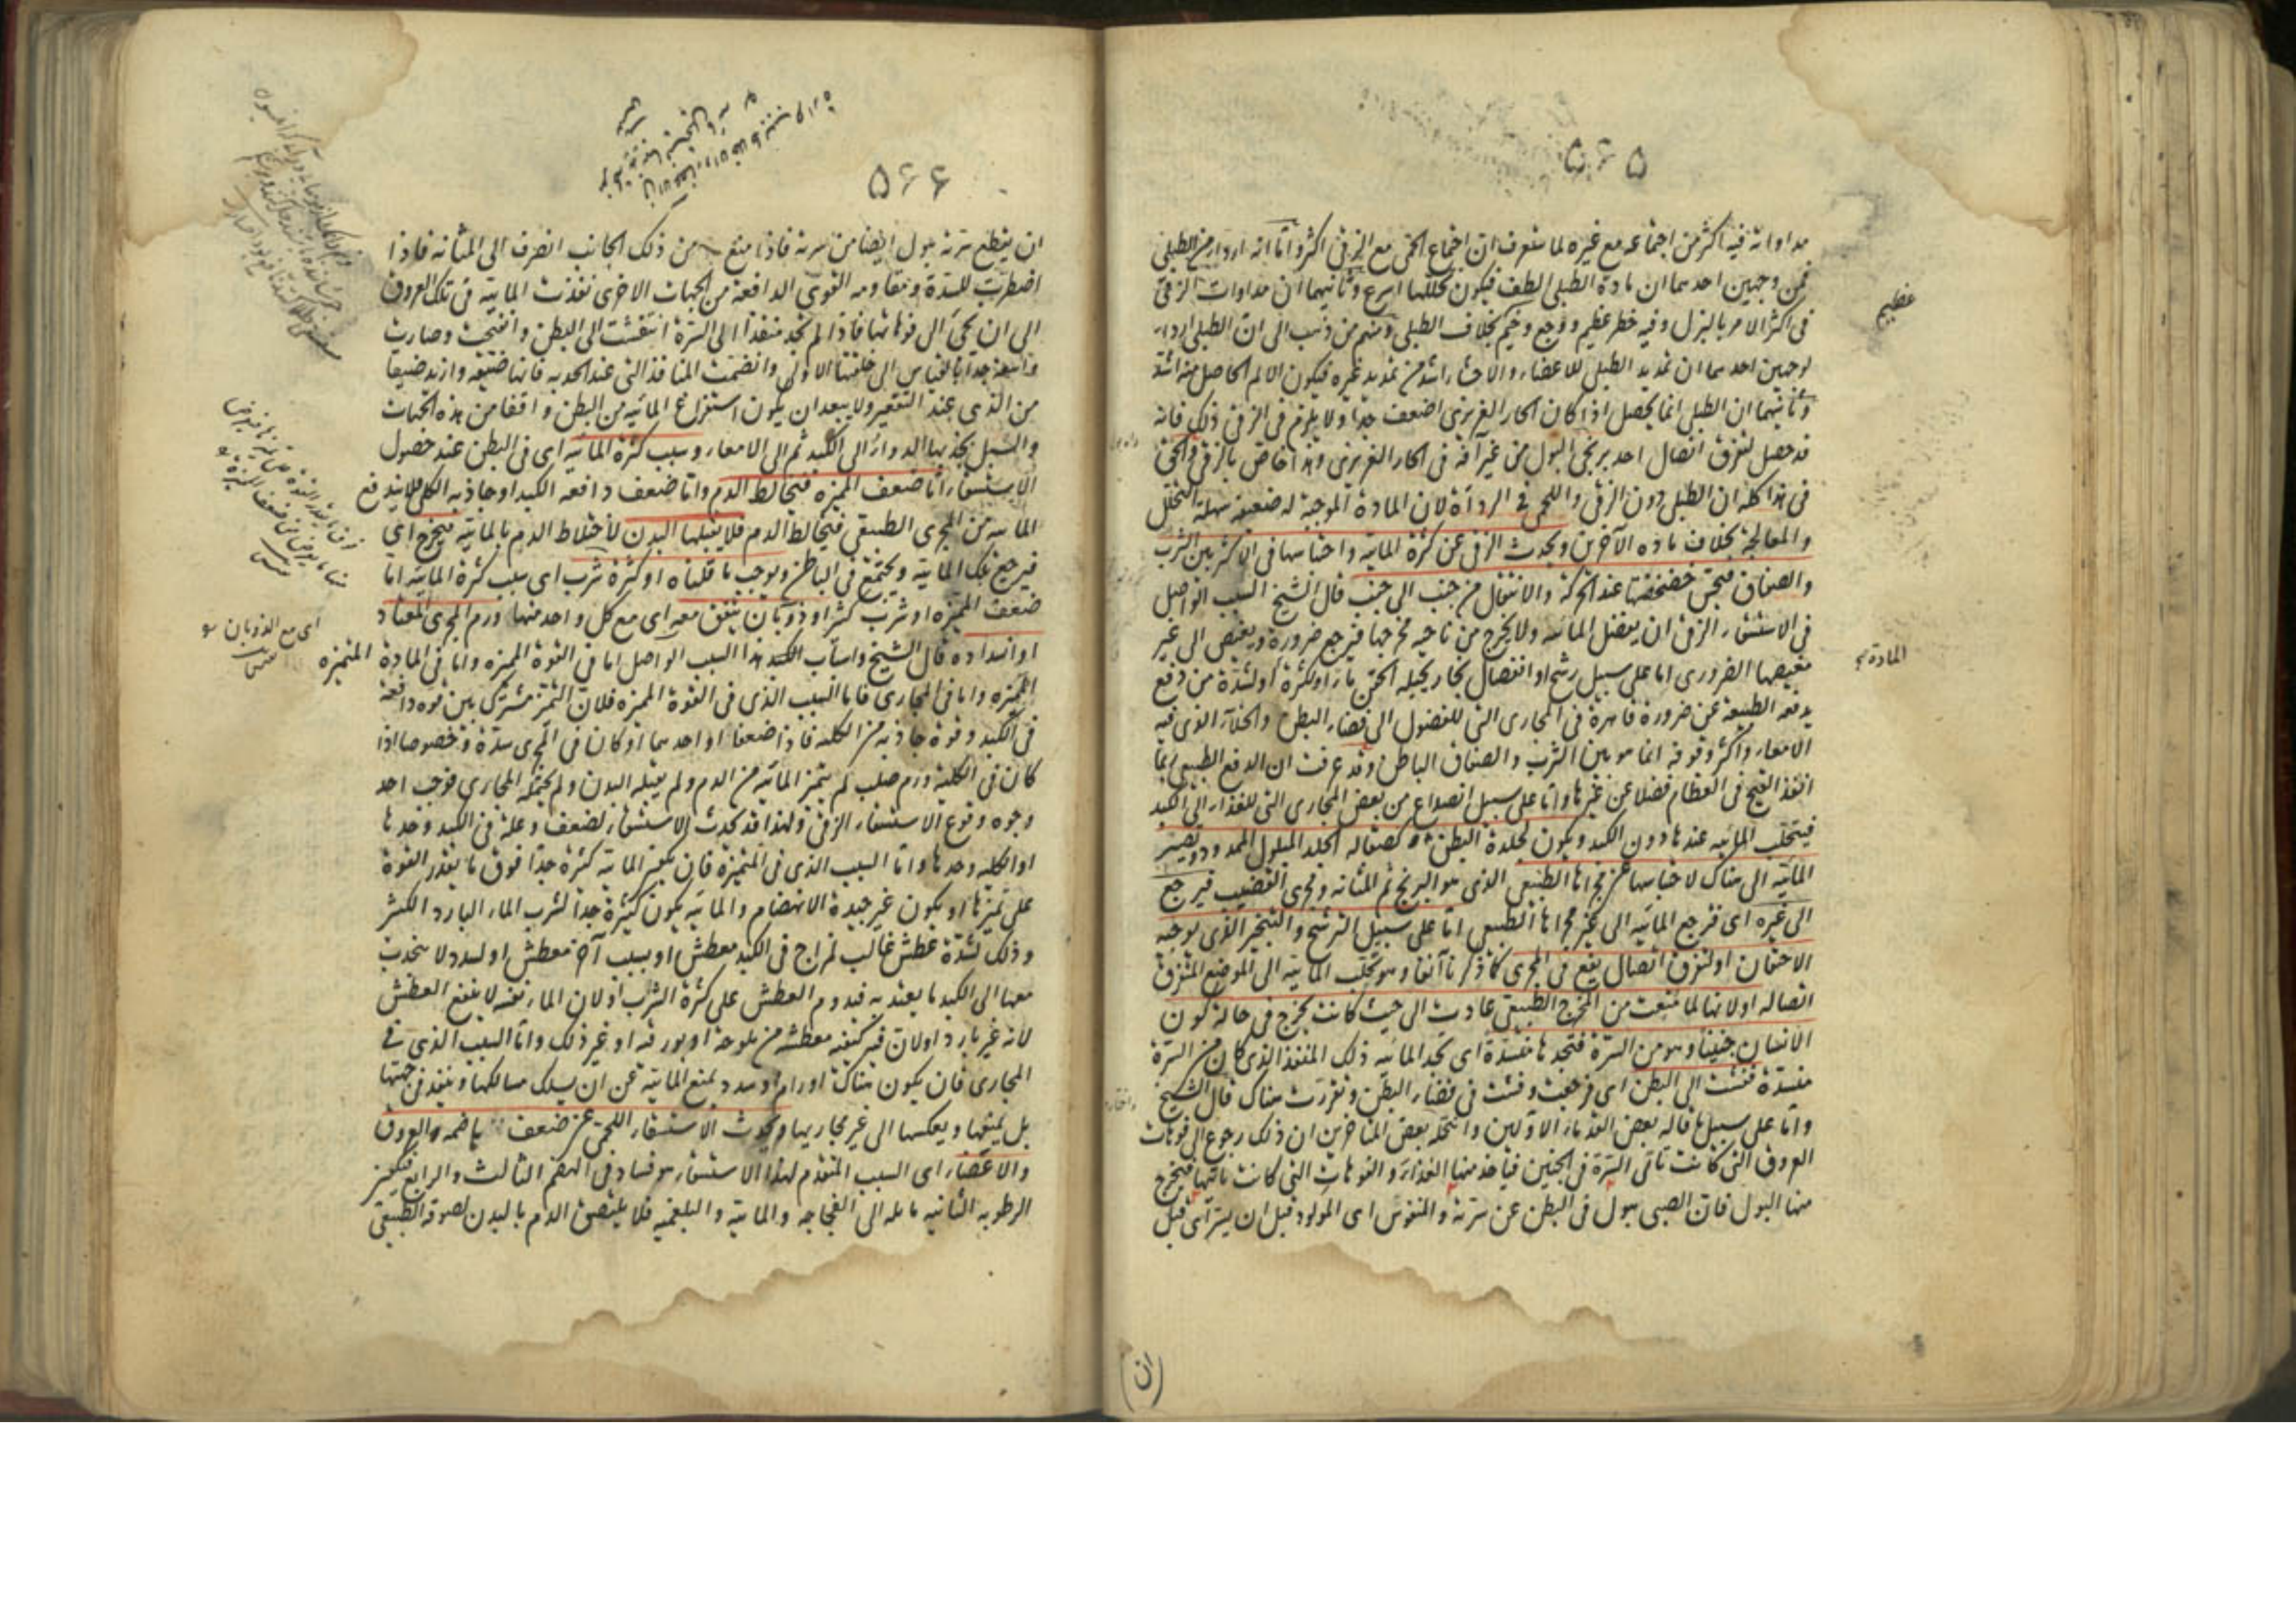 ٥٦٥
مداواته فيه اكثر من اجتماعه مع غيره لما ستعرف ان اجتماع الحمى مع الزقى اكثر واما انه اردأ من الطبلى
فمن وجهين احدهما ان مادة الطبلى الطف فيكون تحللها اسرع وثانيهما ان مداوات الزقى
فى اكثر الامر بالبزل وفيه خطر عظيم ووجع وخيم بخلاف الطبلى ومنهم من ذهب الى ان الطبلى اردأ
لوجهين احدهما ان تمديد الطبلى للاعضاء والاحشاء اشد من تمديد غيره فيكون الالم الحاصل منه اشد
وثانيهما ان الطبلى انما يحصل اذا كان الحار الغريزى اضعف جدا ولا يلزم فى الزقى ذلك فانه
قد حصل لتفرق اتصال احد بربخى البول من غير آفة فى الحار الغريزى وهذا خاص بالزقى والحق
فى هذا كله ان الطبلى دون الزقى واللحمى فى الرداءة لان المادة الموجبة له ضعيفة سهلة التحلل
والمعالجة بخلاف مادة الآخرين ويحدث الزقى عن كثرة المائية واحتباسها فى الاكثر بين الثرب
والصفاق فيحس خضخضتها عند الحركة والانتقال من جنب الى جنب قال الشيخ السبب الواصل
فى الاستسقاء الزقى ان يفضل المائية ولا يخرج من ناحية مخرجها فيرجع ضرورة ويغيض الى غير
مغيضها الضرورى اما على سبيل رشح او انفصال بخار يحيله الحقن ماء او لكثرة او لشدة من دفع
يدفعه الطبيعة عن ضرورة قاهرة فى المجارى التى للفضول الى فضاء البطن والخلاء الذى فيه
الامعاء واكثر وقوفه انما هو بين الثرب والصفاق الباطن وقد عرفت ان الدفع الطبيعى ربما
انفذ القيح فى العظام فضلا عن غيرها واما على سبيل انصداع من بعض المجارى التى للغذاء الى الكبد
فيتحلب المائية عندها دون الكبد ويكون لجلدة البطن صقالة كصقالة الجلد المبلول الممدود ويصير
المائية الى هناك لاحتباسها عن مجراها الطبيعى الذى هو البربخ ثم المثانة ومجرى القضيب فيرجع
الى غيره اى فترجع المائية الى غير مجراها الطبيعى اما على سبيل الترشح والتبخير الذى يوجبه
الاحتقان او لتفرق اتصال يقع فى المجرى كما ذكرنا آنفا وهو تحلب المائية الى الموضع المتفرق
اتصاله او لانها لما منعت من المخرج الطبيعى عادت الى حيث كانت تخرج فى حالة كون
الانسان جنينا وهو من السرة فتجدها منسدة اى تجد المائية ذلك المنفذ الذى كان من السرة
منسدة ففشت الى البطن اى فرجعت وفشت فى فضاء البطن وتفررت هناك قال الشيخ
واما على سبيل ما قاله بعض القدماء الاولين وانتحله بعض المتأخرين ان ذلك رجوع الى فوهات
العروق التى كانت تاتى السرة فى الجنين فيأخذ منها الغذاء والفوهات التى كانت تاتيها فيخرج
منها البول فان الصبى يبول فى البطن عن سرته والمنفوس اى المولود قبل ان يسر اى قبل
عظيم
المادة
ان
٥٦٦
ان يقطع سرته يبول ايضا من سرته فاذا منع من ذلك الجانب انصرف الى المثانة فاذا
اضطرت للسدة ومقاومة القوى الدافعة من الجهات الاخرى نفذت المائية فى تلك العروق
الى ان تجئ الى فوهاتها فاذا لم تجد منفذا الى السرة انتفشت الى البطن وانفتحت وصارت
واسعة جدا بالقياس الى خلقتها الاولى وانضمت المنافذ التى عند الحدبه فانها ضيقة وازيد ضيقا
من الذى عند التقعير ولا يبعد ان يكون استفراغ المائية من البطن واقعا من هذه الجهات
والسبل يجذبها الدواء الى الكبد ثم الى الامعاء وسبب كثرة المائية اى فى البطن عند حصول
الاستسقاء اما ضعف المميزه فتخالط الدم واما ضعف دافعه الكبد او جاذبه الكلى فلا يندفع
المائية من المجرى الطبيعى فتخالط الدم فلا يقبلها البدن لاختلاط الدم بالمائية فيخرج اى
فيرجع تلك المائية ويجتمع فى الباطن ويوجب ما قلناه او كثرة شرب اى سبب كثرة المائية اما
ضعف المميزه او شرب كثير او ذوبان يتفق معه اى مع كل واحد منها ورم المجرى المعتاد
او انسداده قال الشيخ واسباب الكبد هذا السبب الواصل اما فى القوة المميزه واما فى المادة المتميزه
المميزه واما فى المجارى فاما السبب الذى فى القوة المميزه فلان التميز مشترك بين قوة دافعة
فى الكبد وقوة جاذبه من الكلية فاذا ضعفا او احدهما او كان فى المجرى سدة وخصوصا اذا
كان فى الكلية ورم صلب لم يتميز المائية من الدم ولم يقبله البدن ولم يحتمله المجارى فوجب احد
وجوه وقوع الاستسقاء الزقى ولهذا قد يحدث الاستسقاء لضعف وعلة فى الكبد وحدها
او الكلية وحدها واما السبب الذى فى المتميزه فان يكثر المائية كثرة جدا فوق ما يقدر القوة
على تميزها او يكون غير جيدة الانهضام والمائية يكون كثيرة جدا لشرب الماء البارد الكثير
وذلك لشدة عطش غالب لمزاج فى الكبد معطش او بسبب آخر معطش او لسدد لا ينجذب
معها الى الكبد ما يعتد به فيدوم العطش على كثرة الشرب او لان الماء نفسه لا يقمع العطش
لانه غير بارد او لان فيه كيفية معطشة من ملوحة او بورقة او غير ذلك واما السبب الذى فى
المجارى فان يكون هناك اورام وسدد تمنع المائية عن ان يسلك مسالكها وينفذ فى جهتها
بل يمنعها ويعكسها الى غير مجاريها ويحدث الاستسقاء اللحمى عن ضعف هاضمه العروق
والاعضاء اى السبب المتقدم لهذا الاستسقاء هو فساد فى الهضم الثالث والرابع فيكثر
الرطوبة الثانية مائله الى الفجاجه والمائية والبلغميه فلا يلتصق الدم بالبدن لصوقه الطبيعى
اى مع الذوبان